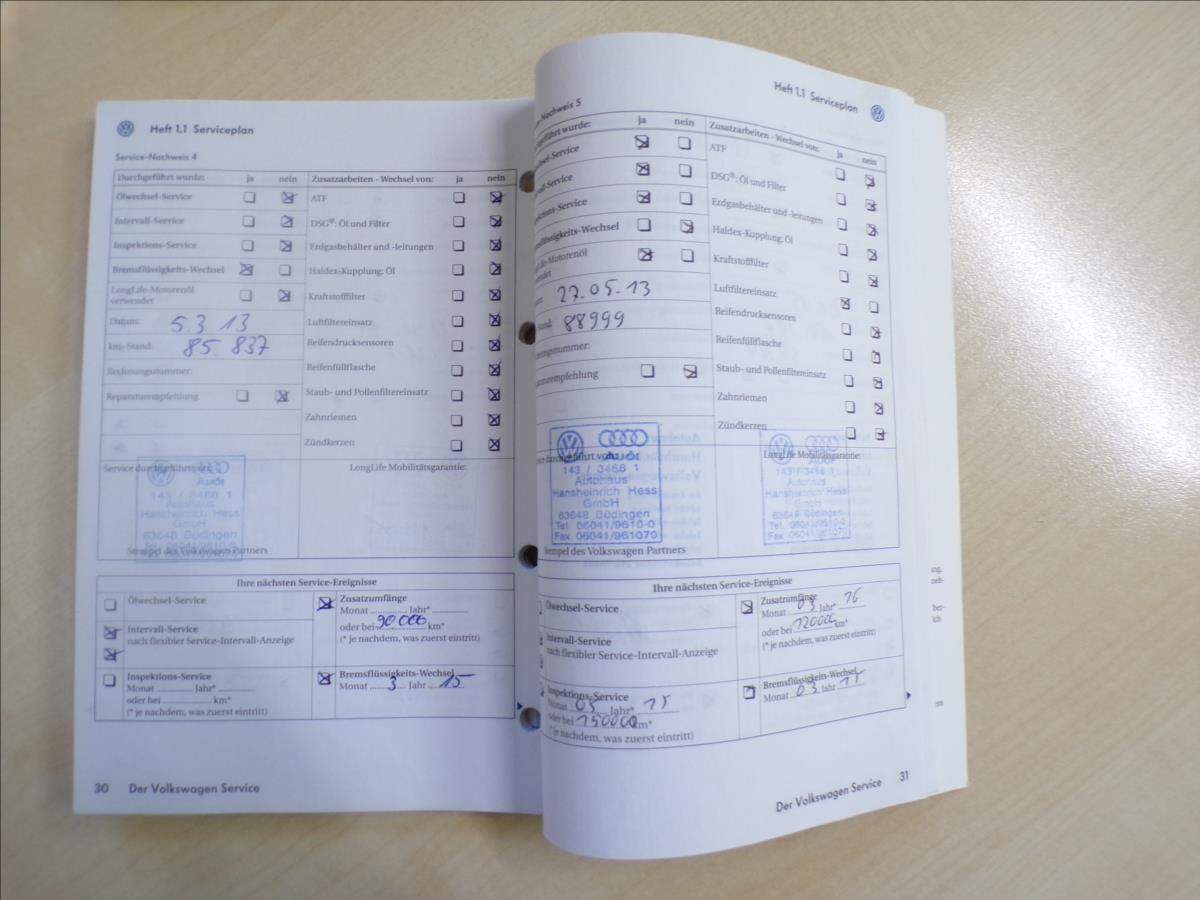 Heft 1.1 Serviceplan
Service-Nachweis 4
Durchgeführt wurde: ja nein Zusatzarbeiten - Wechsel von: ja nein
Ölwechsel-Service ATF
Intervall-Service DSG®: Öl und Filter
Inspektions-Service Erdgasbehälter und -leitungen
Bremsflüssigkeits-Wechsel Haldex-Kupplung: Öl
LongLife-Motorenöl
verwendet Kraftstofffilter
Datum: 5 3 13 Luftfiltereinsatz
km-Stand: 85.837 Reifendrucksensoren
Rechnungsnummer: Reifenfüllflasche
Reparaturempfehlung Staub- und Pollenfiltereinsatz
Zahnriemen
Zündkerzen
Service durchgeführt LongLife Mobilitätsgarantie:
Audi
143 / 3466 1
Autohaus
Hansheinrich Hess
GmbH
63648 Büdingen
Stempel des Volkswagen Partners
Ihre nächsten Service-Ereignisse
Ölwechsel-Service Zusatzumfänge
Monat Jahr*
Intervall-Service oder bei 90 000 km*
nach flexibler Service-Intervall-Anzeige (* je nachdem, was zuerst eintritt)
Inspektions-Service Bremsflüssigkeits-Wechsel
Monat Jahr* Monat 3 Jahr 15
oder bei km*
(* je nachdem, was zuerst eintritt)
30 Der Volkswagen Service
Heft 1.1 Serviceplan
Nachweis 5
wurde: ja nein Zusatzarbeiten - Wechsel von: ja nein
-Service ATF
-Service DSG®: Öl und Filter
-Service Erdgasbehälter und -leitungen
-Wechsel Haldex-Kupplung: Öl
-Motorenöl Kraftstofffilter
27.05.13 Luftfiltereinsatz
88999 Reifendrucksensoren
Reifenfüllflasche
Staub- und Pollenfiltereinsatz
Zahnriemen
Zündkerzen
LongLife Mobilitätsgarantie:
Audi
143 / 3466 1
Autohaus
Hansheinrich Hess
GmbH
63648 Büdingen
Tel. 06041/9610-0
Fax 06041/961070
143 / 3466 1
Autohaus
Hansheinrich Hess
GmbH
63648 Büdingen
Tel. 06041/9610-0
Fax 06041/961070
Stempel des Volkswagen Partners
Ihre nächsten Service-Ereignisse
Ölwechsel-Service Zusatzumfänge
Monat 03 Jahr* 16
Intervall-Service oder bei 120000 km*
nach flexibler Service-Intervall-Anzeige (* je nachdem, was zuerst eintritt)
Inspektions-Service Bremsflüssigkeits-Wechsel
Monat 05 Jahr* 15 Monat 03 Jahr 15
oder bei 150000 km*
(* je nachdem, was zuerst eintritt)
Der Volkswagen Service 31